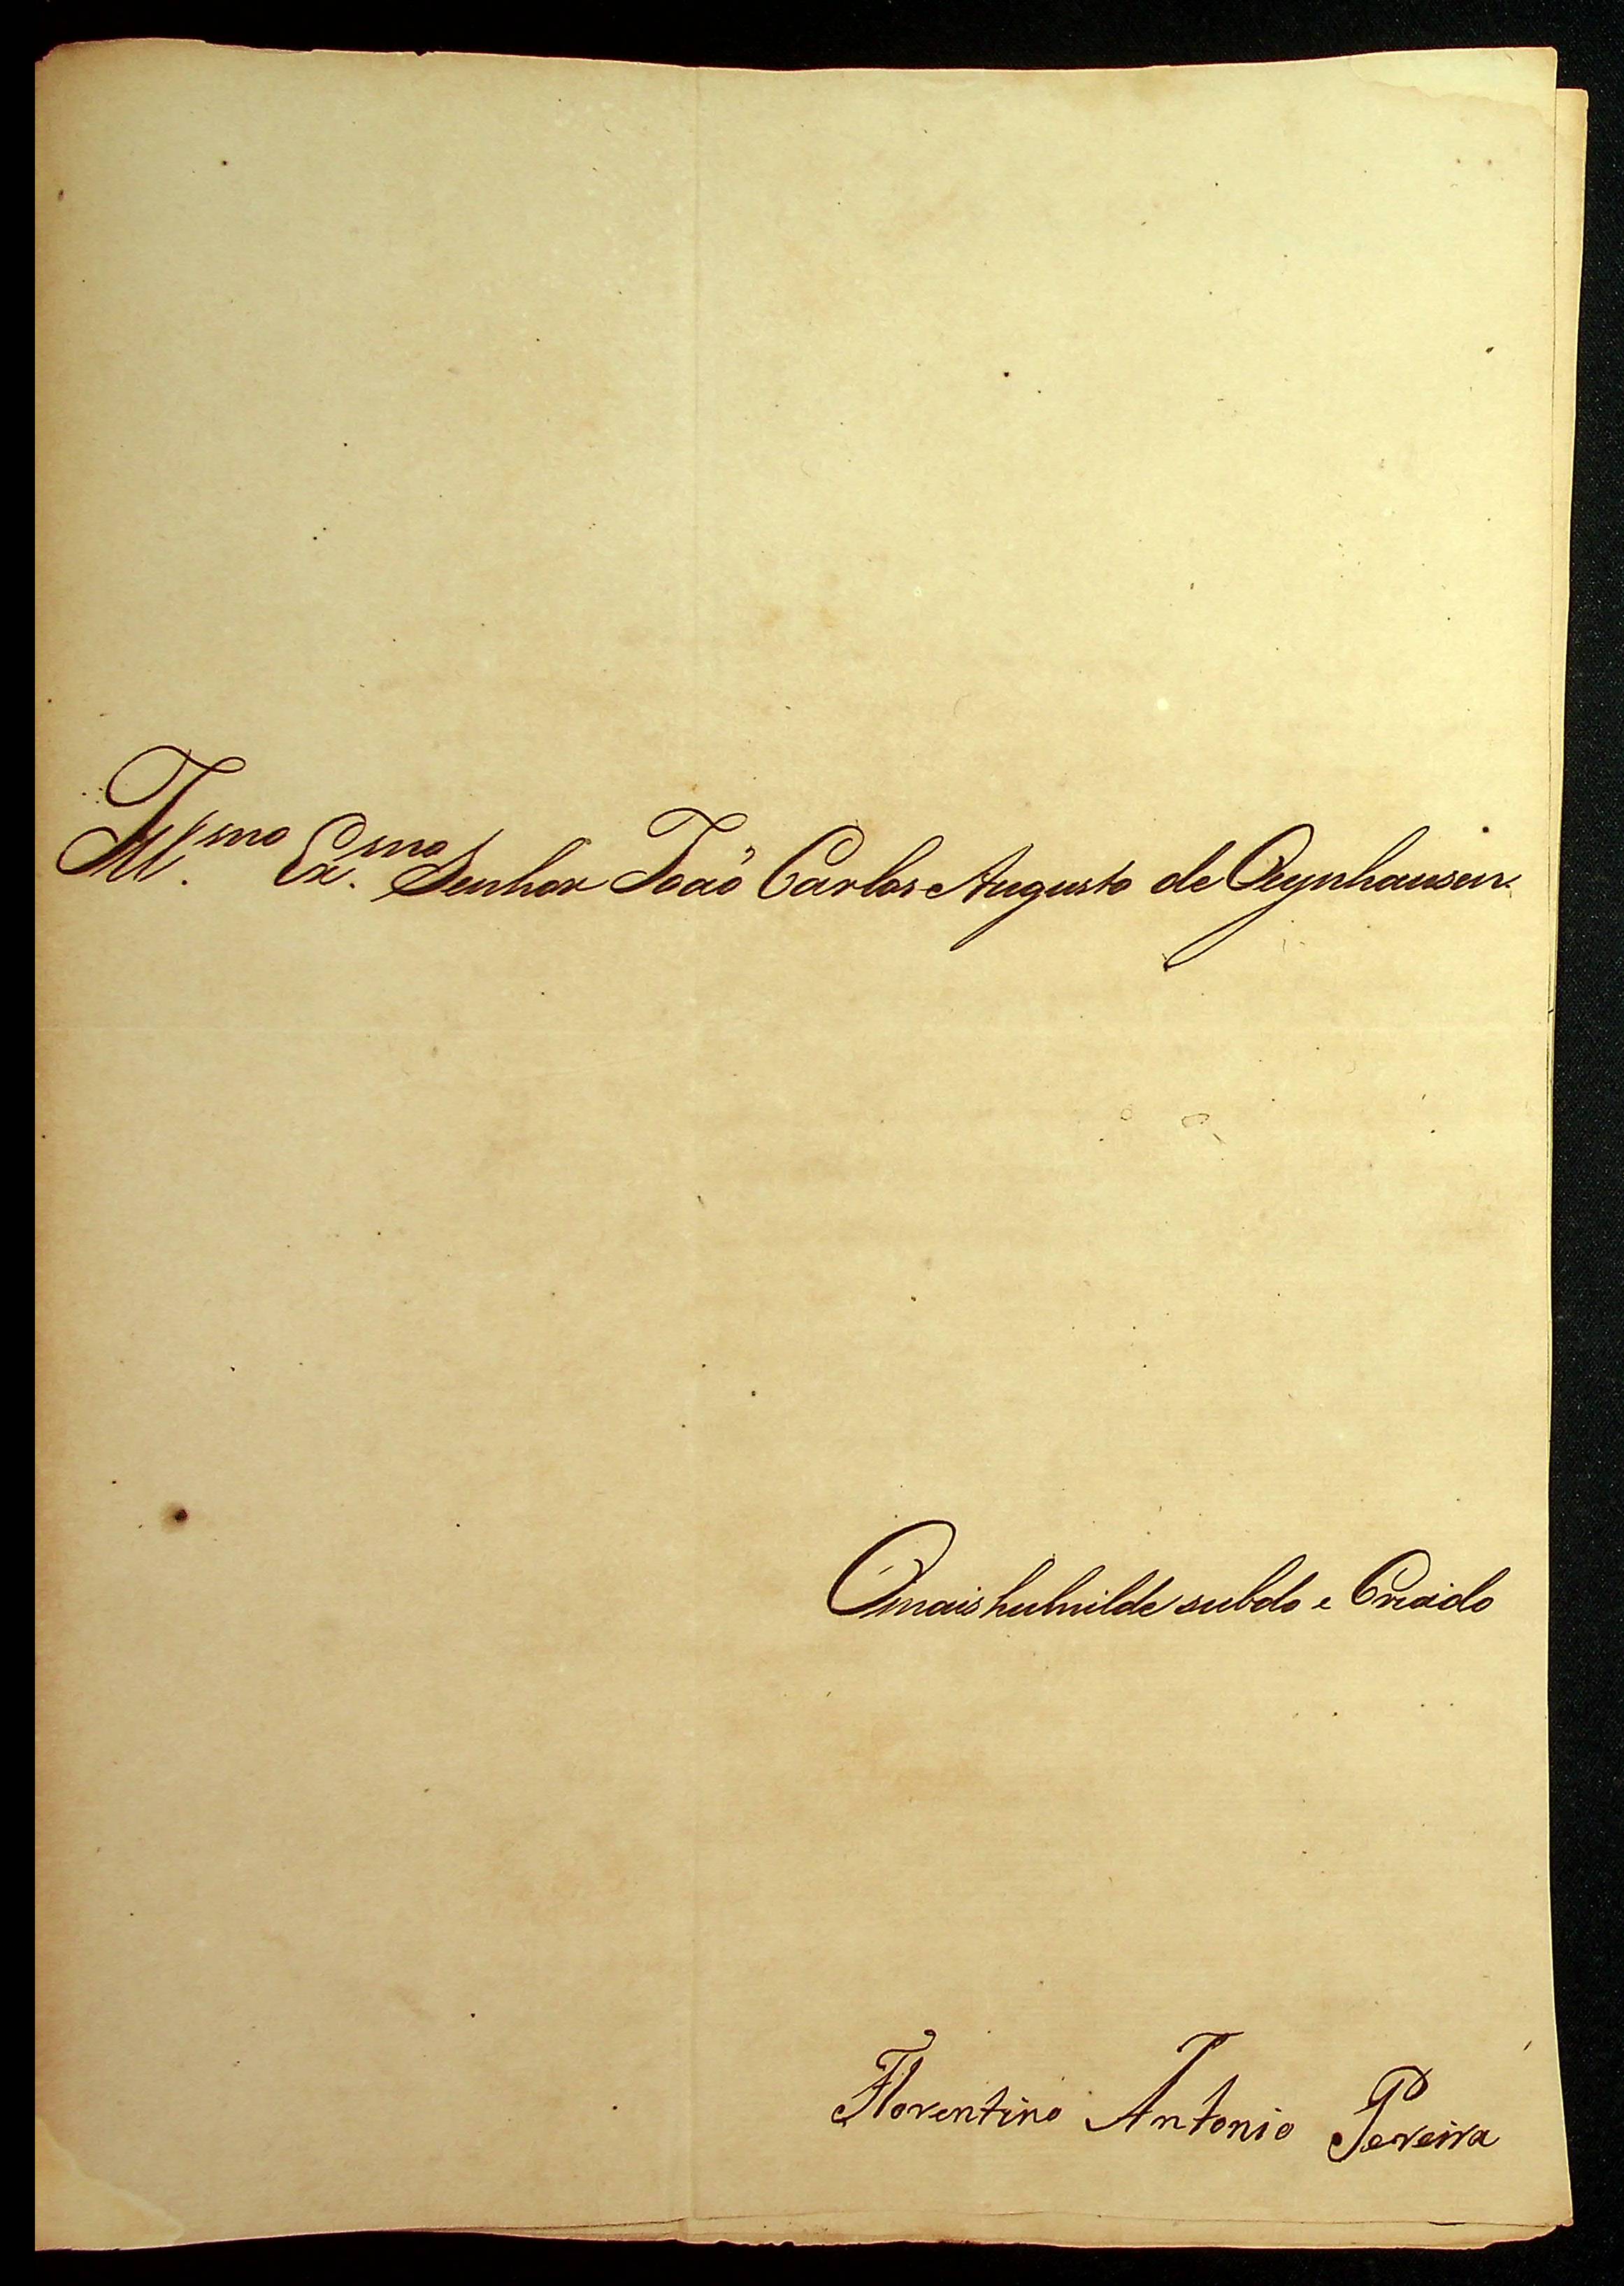 Ill.mo Ex.mo Senhor João Carlos Augusto de Oeynhausen.
O mais humilde subdo e Criado
Florentino Antonio Pereira